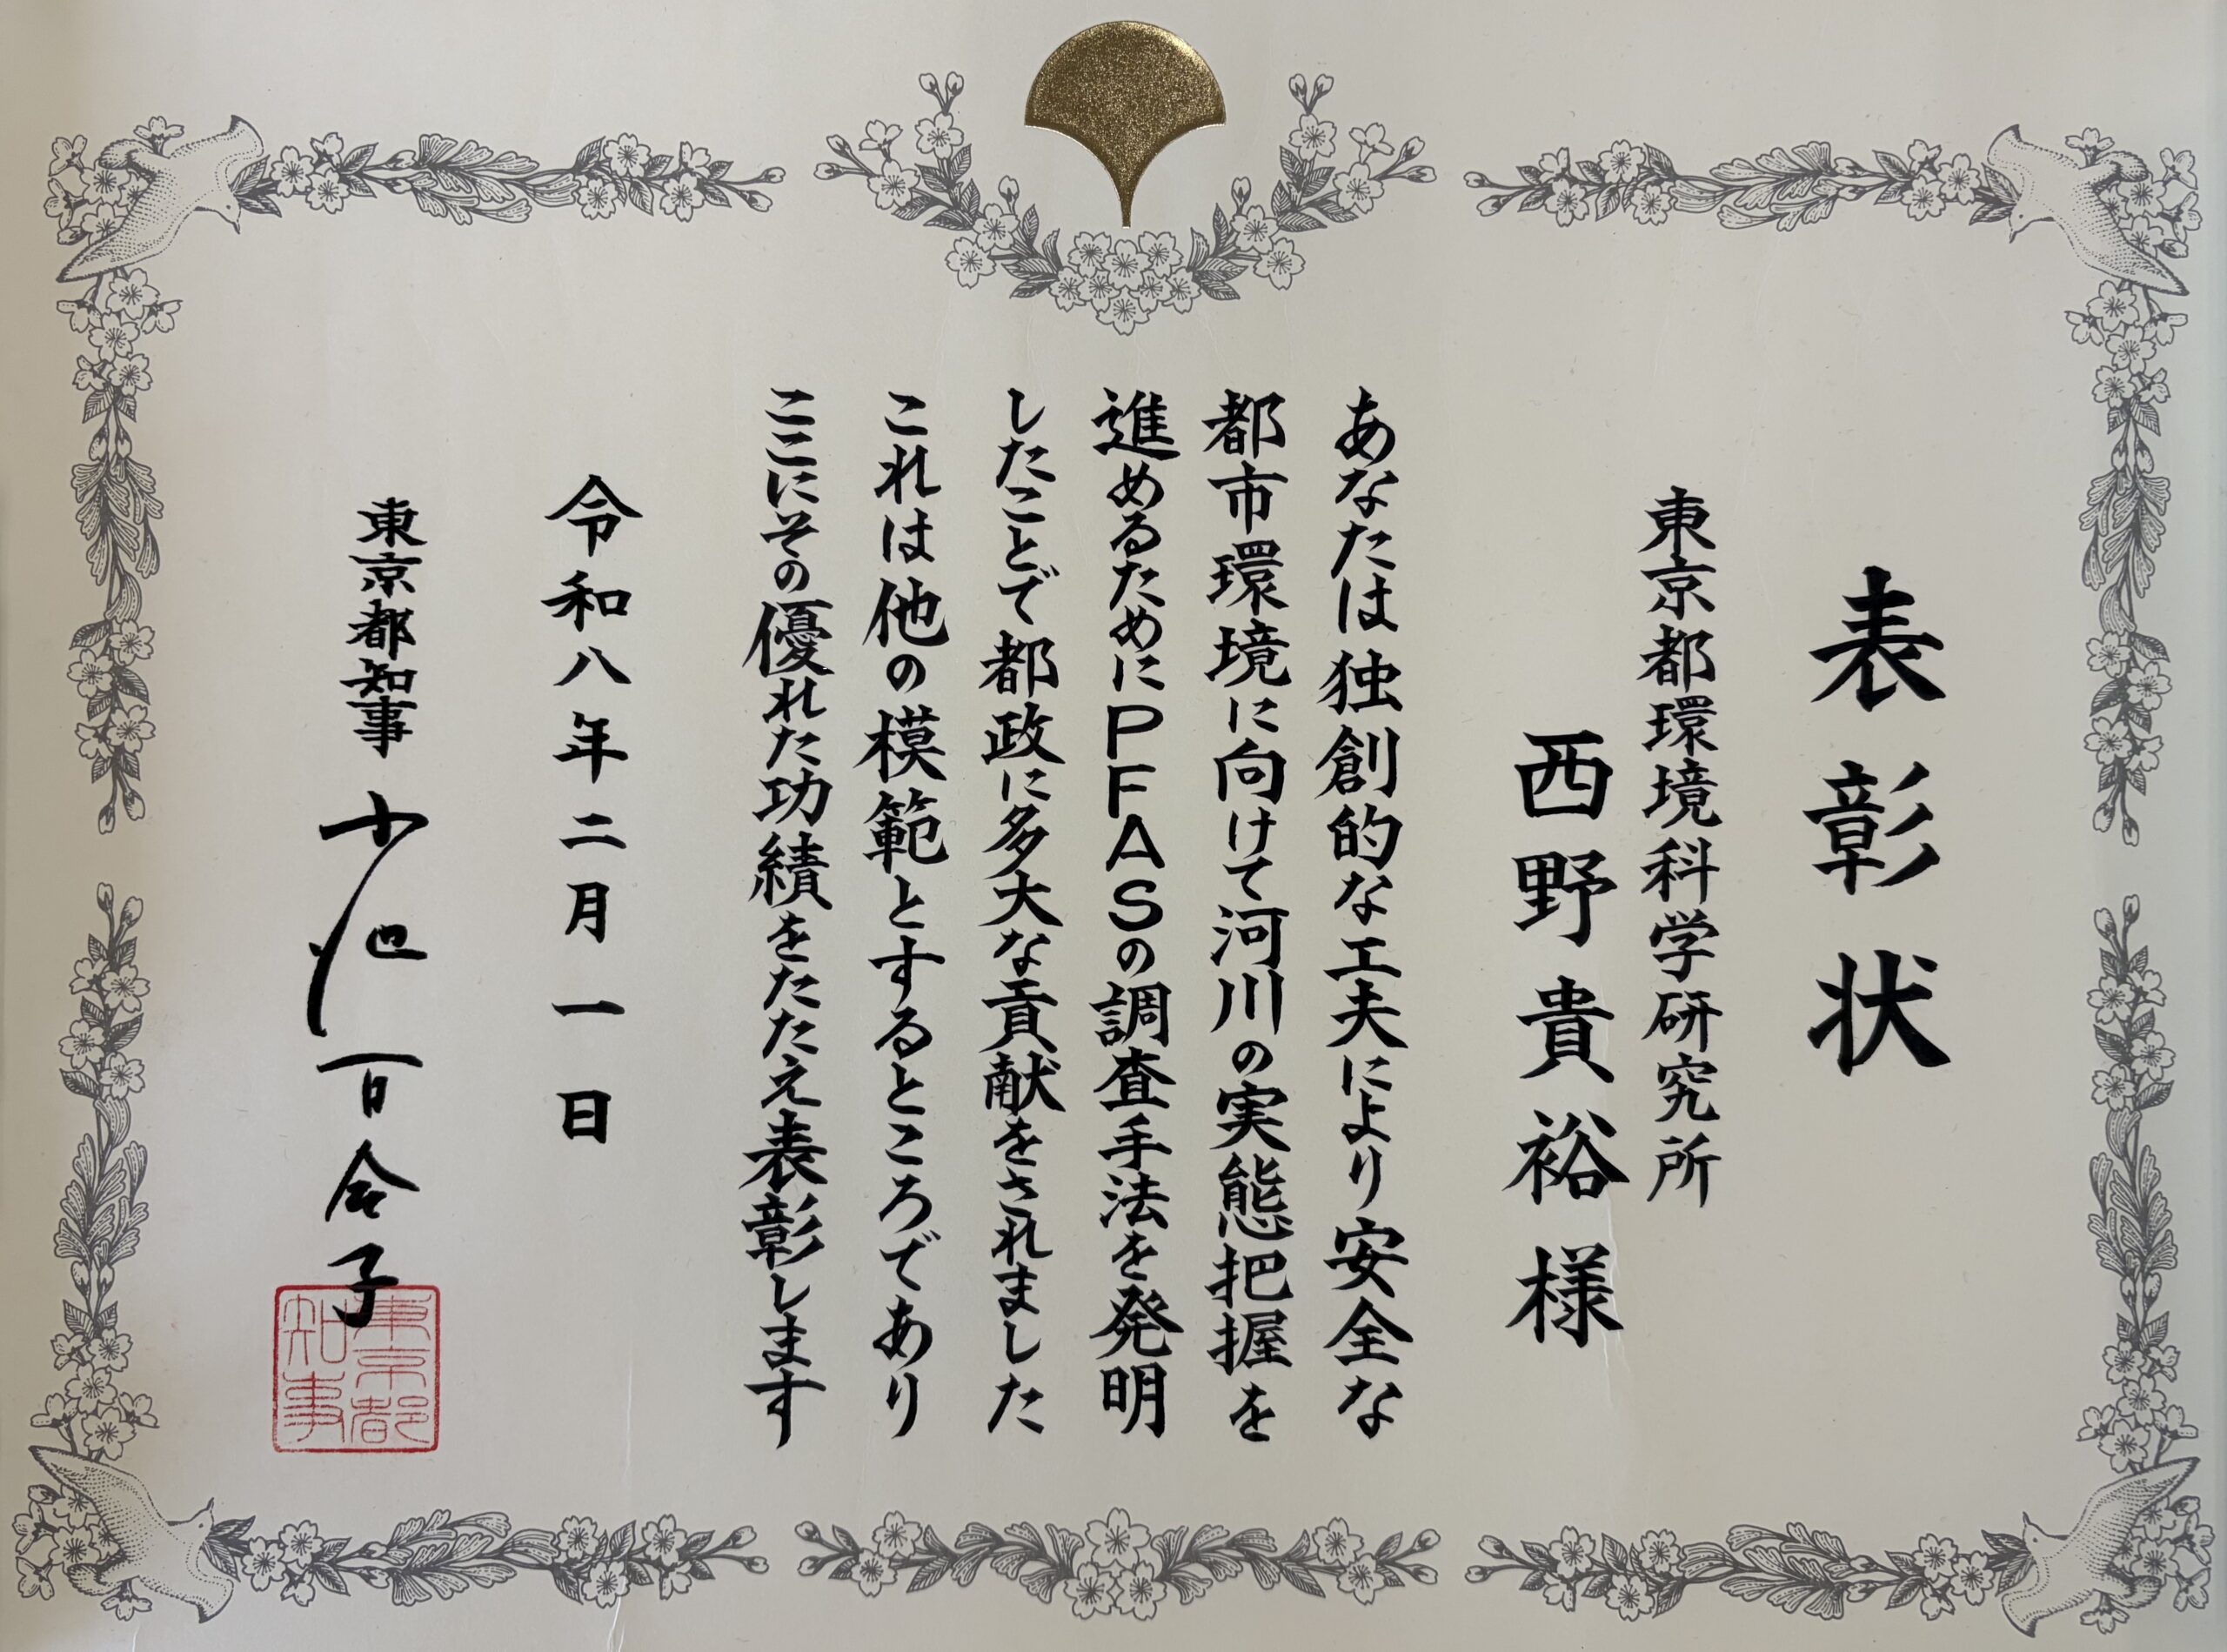 表彰状
東京都環境科学研究所
西野貴裕様
あなたは独創的な工夫により安全な
都市環境に向けて河川の実態把握を
進めるためにPFASの調査手法を発明
したことで都政に多大な貢献をされました
これは他の模範とするところであり
ここにその優れた功績をたたえ表彰します
令和八年二月一日
東京都知事 小池百合子
東京都
知事